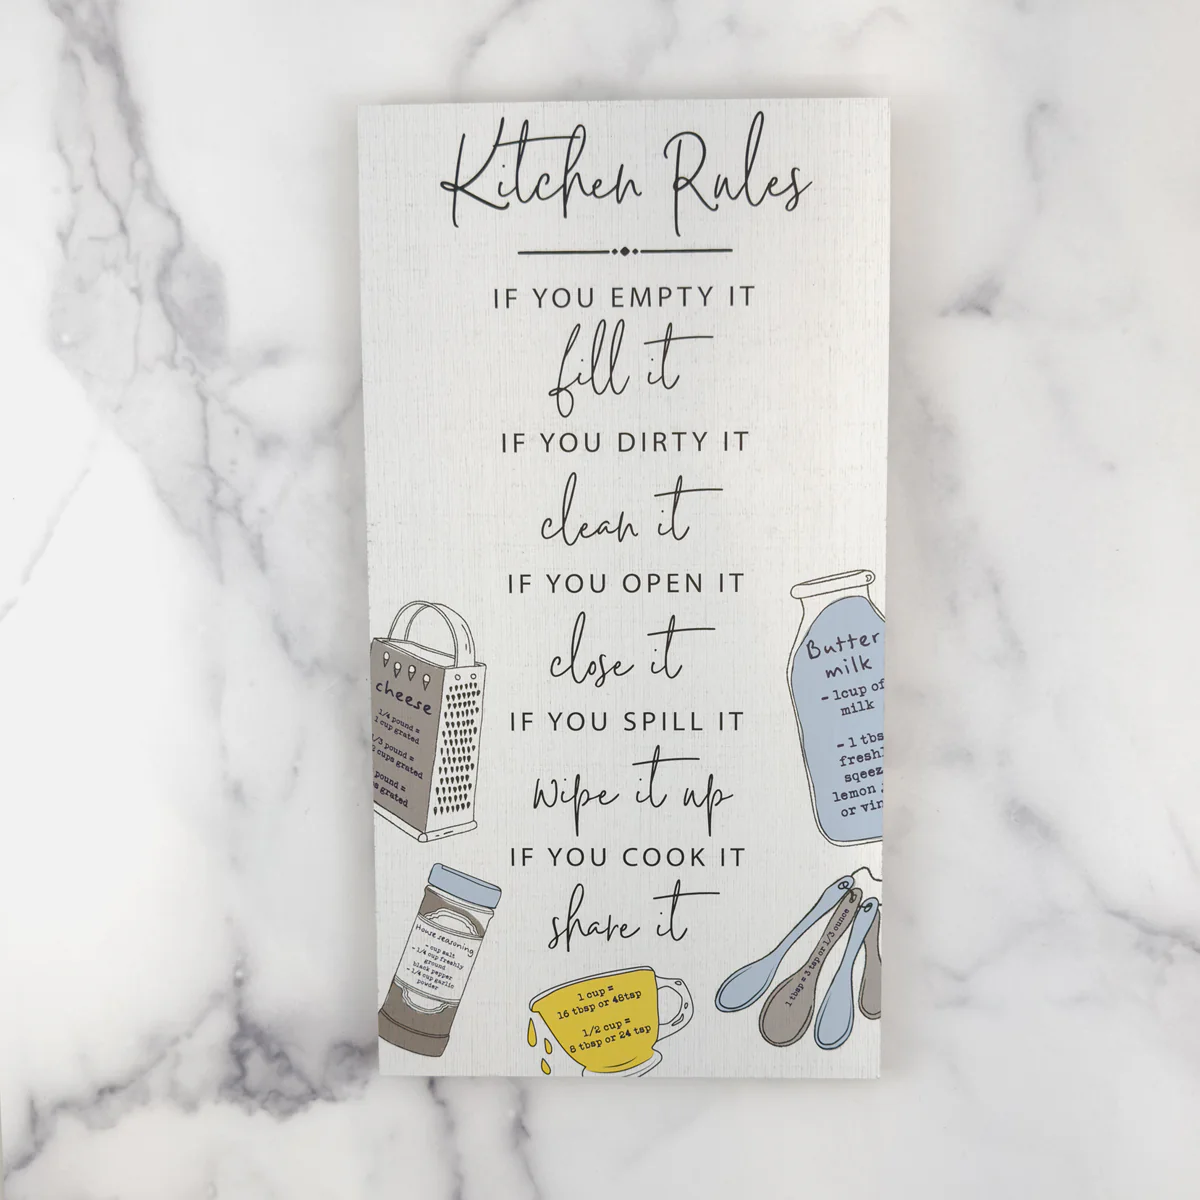 Kitchen Rules
IF YOU EMPTY IT
fill it
IF YOU DIRTY IT
clean it
IF YOU OPEN IT
close it
IF YOU SPILL IT
wipe it up
IF YOU COOK IT
share it
cheese
1/4 pound =
1 cup grated
/3 pound =
cups grated
pound =
grated
Butter
milk
- 1cup of
milk
- 1 tbs
fresh
sqeez
lemon
or vin
House seasoning
- cup salt
- 1/4 cup freshly
ground
black pepper
- 1/4 cup garlic
powder
1 cup =
16 tbsp or 48tsp
1/2 cup =
8 tbsp or 24 tsp
1 tbsp = 3 tsp or 1/3 ounce